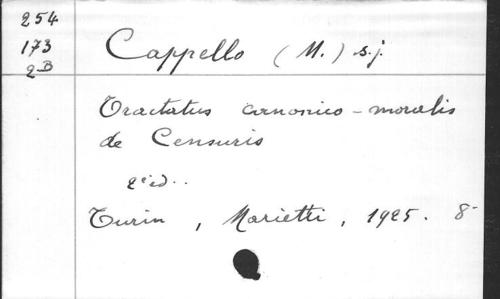 254
173
2B
Cappello (M.) s.j.
Tractatus canonico-moralis
de Censuris
2e ed..
Turin, Marietti, 1925. 8-